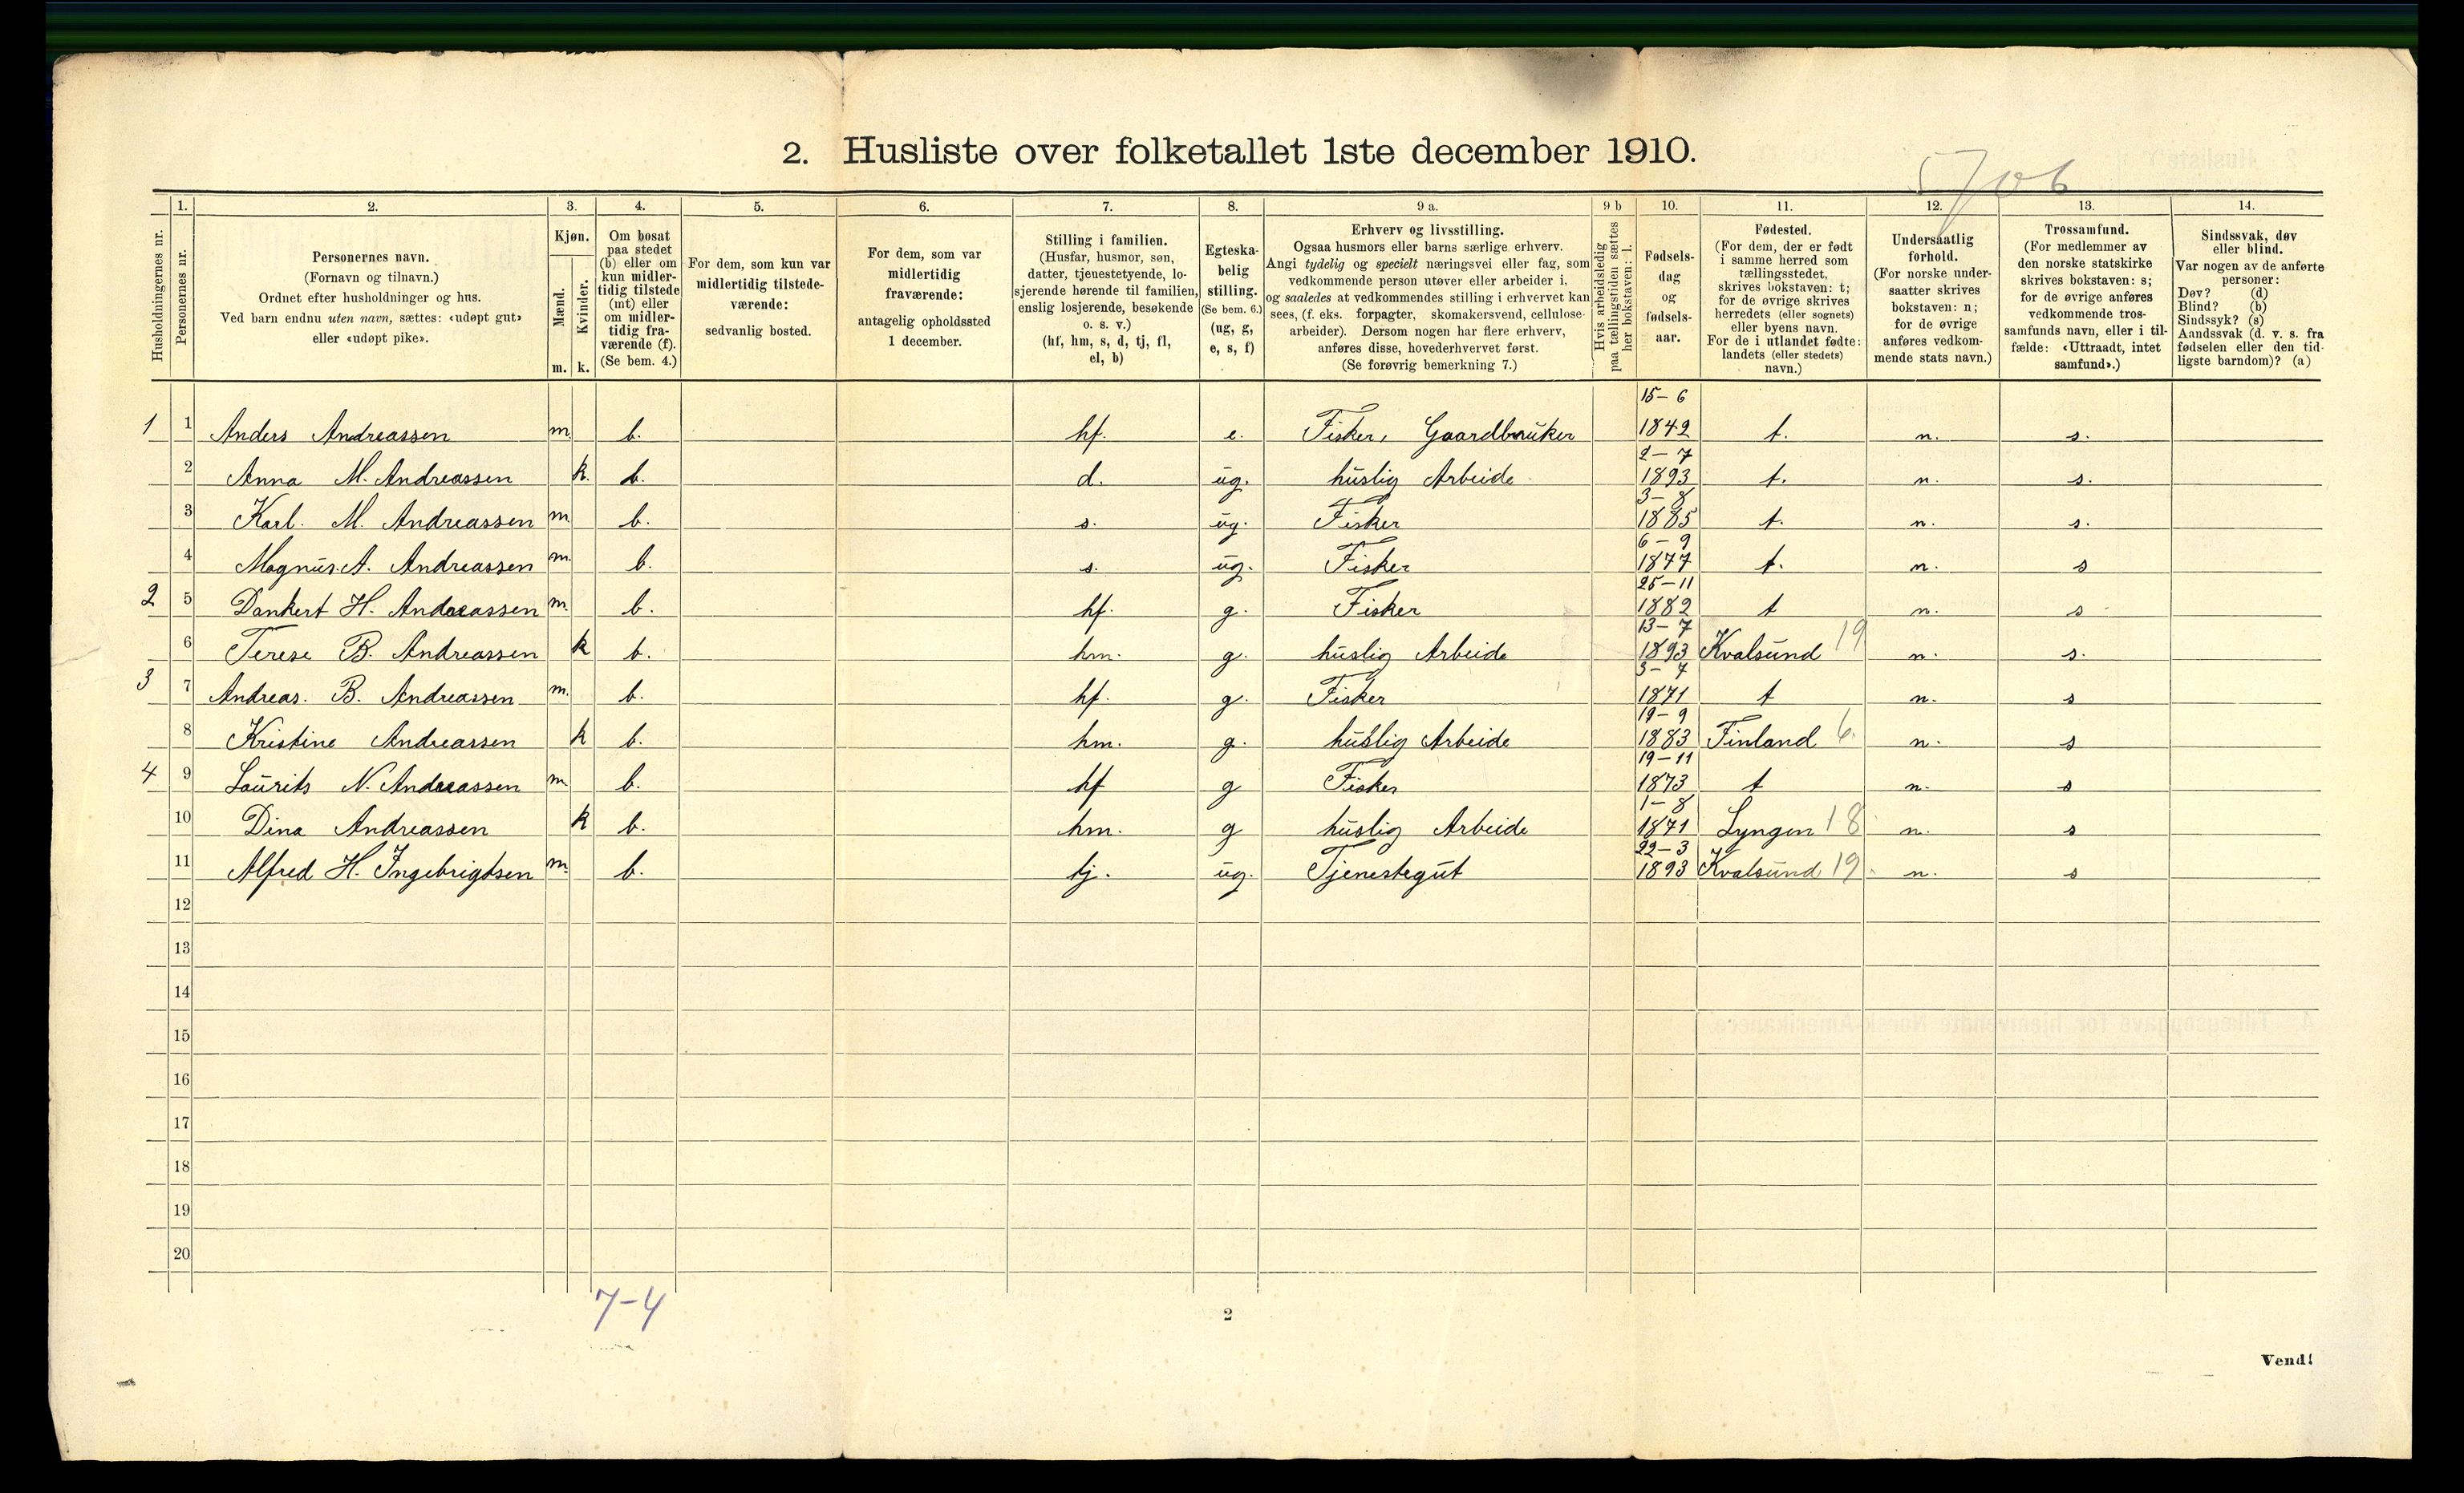 2. Husliste over folketallet 1ste december 1910.
5706
1. 2. 3. 4. 5. 6. 7. 8. 9 a. 9 b 10. 11. 12. 13. 14.
Husholdningernes nr.
Personernes nr.
Personernes navn.
(Fornavn og tilnavn.)
Ordnet efter husholdninger og hus.
Ved barn endnu uten navn, sættes: «udøpt gut»
eller «udøpt pike».
Kjøn.
Mænd.
Kvinder.
m. k.
Om bosat
paa stedet
(b) eller om
kun midler-
tidig tilstede
(mt) eller
om midler-
tidig fra-
værende (f).
(Se bem. 4.)
For dem, som kun var
midlertidig tilstede-
værende:
sedvanlig bosted.
For dem, som var
midlertidig
fraværende:
antagelig opholdssted
1 december.
Stilling i familien.
(Husfar, husmor, søn,
datter, tjenestetyende, lo-
sjerende hørende til familien,
enslig losjerende, besøkende
o. s. v.)
(hf, hm, s, d, tj, fl,
el, b)
Egteska-
belig
stilling.
(Se bem. 6.)
(ug, g,
e, s, f)
Erhverv og livsstilling.
Ogsaa husmors eller barns særlige erhverv.
Angi tydelig og specielt næringsvei eller fag, som
vedkommende person utøver eller arbeider i,
og saaledes at vedkommendes stilling i erhvervet kan
sees, (f. eks. forpagter, skomakersvend, cellulose-
arbeider). Dersom nogen har flere erhverv,
anføres disse, hovederhvervet først.
(Se forøvrig bemerkning 7.)
Hvis arbeidsledig
paa tællingstiden sættes
her bokstaven: l.
Fødsels-
dag
og
fødsels-
aar.
Fødested.
(For dem, der er født
i samme herred som
tællingsstedet,
skrives bokstaven: t;
for de øvrige skrives
herredets (eller sognets)
eller byens navn.
For de i utlandet fødte:
landets (eller stedets)
navn.)
Undersaatlig
forhold.
(For norske under-
saatter skrives
bokstaven: n;
for de øvrige
anføres vedkom-
mende stats navn.)
Trossamfund.
(For medlemmer av
den norske statskirke
skrives bokstaven: s;
for de øvrige anføres
vedkommende tros-
samfunds navn, eller i til-
fælde: «Uttraadt, intet
samfund».)
Sindssvak, døv
eller blind.
Var nogen av de anførte
personer:
Døv? (d)
Blind? (b)
Sindssyk? (s)
Aandssvak (d. v. s. fra
fødselen eller den tid-
ligste barndom)? (a)
1 1 Anders Andreassen m. b. hf. e. Fisker, Gaardbruker 15-6 1842 t. n. s.
2 Anna M. Andreassen k. b. d. ug. huslig Arbeide 2-7 1893 t. n. s.
3 Karl. M. Andreassen m b. s. ug. Fisker 3-8 1885 t. n. s.
4 Magnus. A. Andreassen m. b. s. ug. Fisker 6-9 1877 t. n. s
2 5 Dankert H. Andreassen m. b. hf. g. Fisker 25-11 1882 t n. s
6 Terese B. Andreassen k b. hm. g. huslig Arbeide 13-7 1893 Kvalsund 19 n. s.
3 7 Andreas. B. Andreassen m. b. hf. g. Fisker 3-7 1871 t n. s
8 Kristine Andreassen k b. hm. g. huslig Arbeide 19-9 1883 Finland 6. n. s
4 9 Laurits N. Andreassen m. b. hf g Fisker 19-11 1873 t n. s
10 Dina Andreassen k b. hm. g huslig Arbeide 1-8 1871 Lyngen 18 n. s
11 Alfred H. Ingebrigtsen m. b. tj. ug. Tjenestegut 22-3 1893 Kvalsund 19. n. s
12
13
14
15
16
17
18
19
20
7-4
2
Vend!